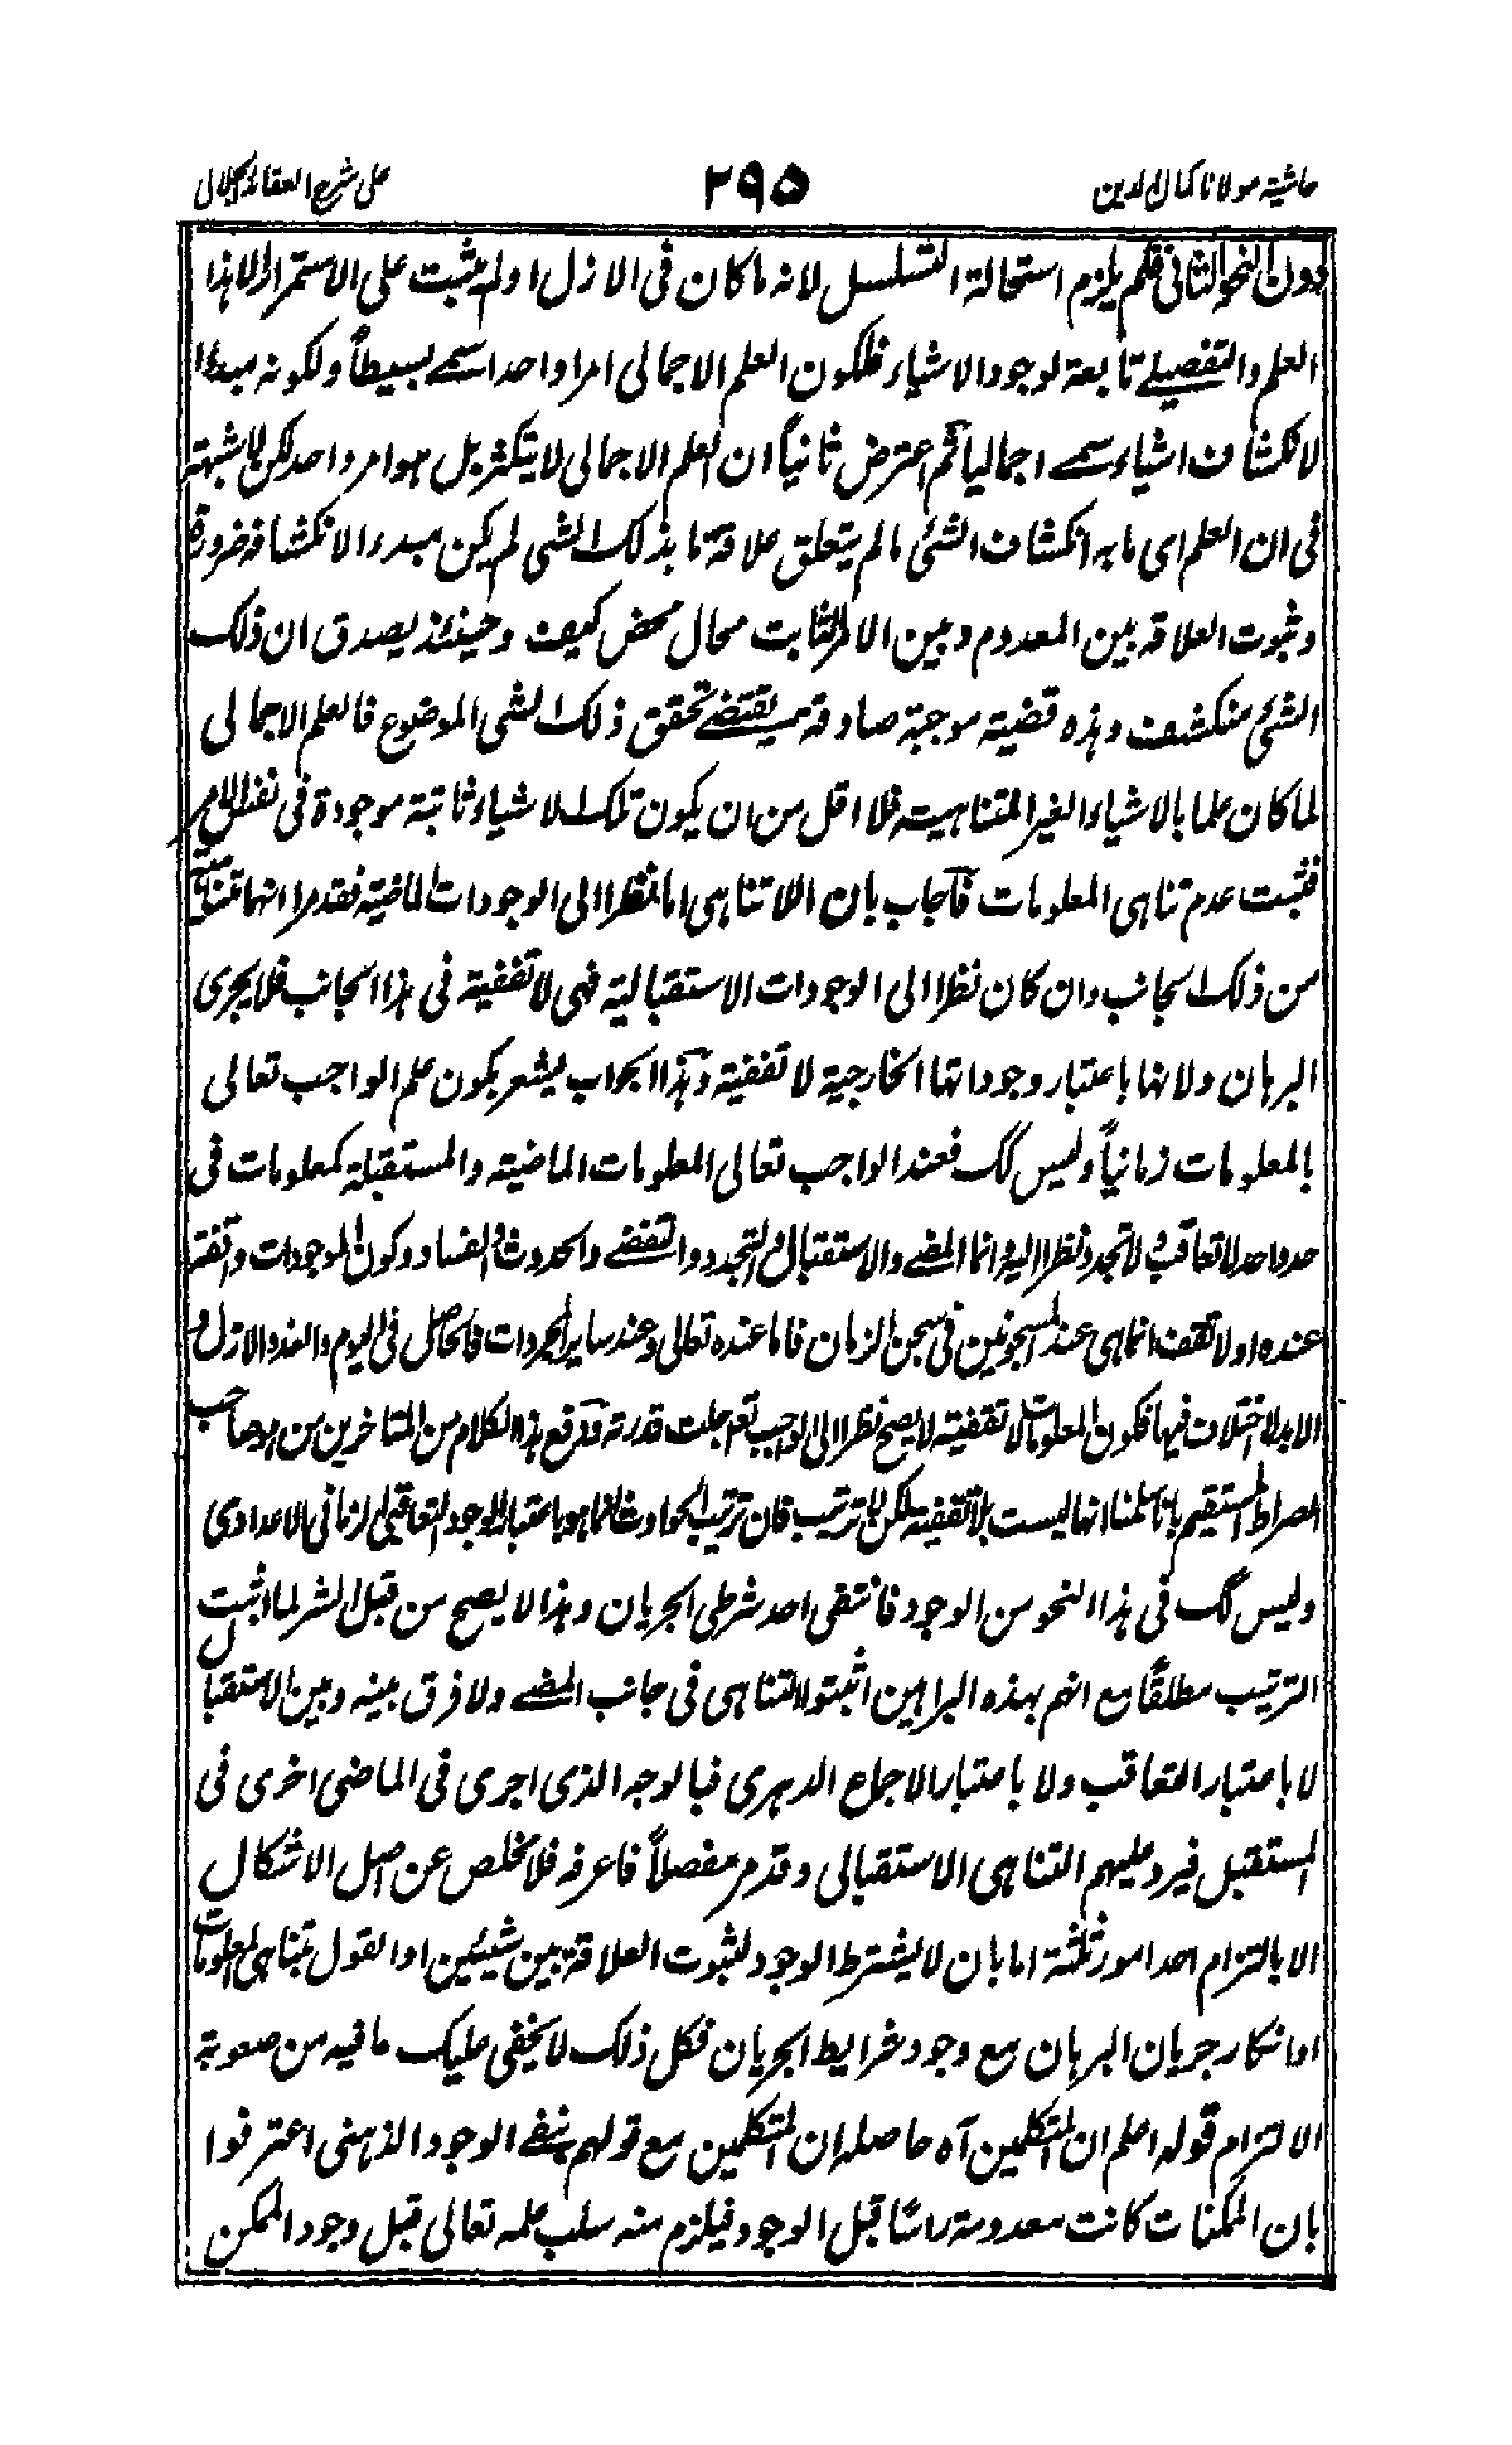 حاشية مولانا كمال الدين ٢٩٥ على شرح العقائد الجلالى
دون النحو الثانى فلم يلزم استحالة التسلسل لانه ما كان فى الازل اولم يثبت على الاستمرار الا هذا
العلم والتفصيلے تابعة لوجود الاشياء فلكون العلم الاجمالى امرا واحدا سمے بسيطاً ولكونه مبدءا
لانكشاف اشياء سمے اجماليا ثم اعترض ثانياً ان العلم الاجمالى لا يتكثر بل هو امر واحد لكن لا شبهة
فى ان العلم اى ما به انكشاف الشئ ما لم يتعلق علاقة ما بذلك الشى لم يكن مبدءا لانكشافه ضرورة
وثبوت العلاقة بين المعدوم وبين الامر الثابت محال محض كيف وحينئذ يصدق ان ذلك
الشئ منكشف وهذه قضية موجبة صادقة يقتضے تحقق ذلك الشى الموضوع فالعلم الاجمالى
لما كان علما بالاشياء الغير المتناهية فلا اقل من ان يكون تلك الاشياء ثابتة موجودة فى نفس الامر
فثبت عدم تناهى المعلومات فاجاب بان اللاتناهى اما نظرا الى الوجودات الماضية فقد مر انها متناهية
من ذلك الجانب وان كان نظرا الى الوجودات الاستقبالية فهى لا تقفية فى هذا الجانب فلا يجرى
البرهان ولانها باعتبار وجوداتها الخارجية لا تقفية وهذا الجواب يشعر بكون علم الواجب تعالى
بالمعلومات زمانياً وليس كك فعند الواجب تعالى المعلومات الماضية والمستقبلة كمعلومات فى
حد واحد لا تعاقب ولا تجدد نظرا اليه وانما المضے والاستقبال والتجدد والتقضے والحدوث والفساد وكون الموجودات واقفة
عنده او لا تقف انما هى عند المسجونين فى سجن الزمان فاما عنده تعالى وعند ساير المجردات فالحاصل فى اليوم والغد والازل و
الابد لا اختلاف فيها فكون المعلومات لا تقفية لا يصح نظرا الى الواجب تعـ جلت قدرته وقد رفع هذا الكلام من المتاخرين من هو صاحب
الصراط المستقيم بانا سلمنا انها ليست بلا تقفية لكن لا ترتيب فان ترتيب الحوادث انما هو باعتبار الوجود التعاقبى الزمانى الاعدادى
وليس كك فى هذا النحو من الوجود فانتفى احد شرطى الجريان وهذا لا يصح من قبل الشر لما اثبت
الترتيب مطلقاً مع انهم بهذه البراهين اثبتوا التناهى فى جانب المضے ولا فرق بينه وبين الاستقبال
لا باعتبار التعاقب ولا باعتبار الاجماع الدهرى فبالوجه الذى اجرى فى الماضى اخرى فى
المستقبل فيرد عليهم التناهى الاستقبالى وقد مر مفصلاً فاعرفه فلا مخلص عن اصل الاشكال
الا بالتزام احد امور ثلثة اما بان لا يشترط الوجود لثبوت العلاقة بين شيئين او القول بتناهى المعلومات
او انكار جريان البرهان مع وجود شرايط الجريان فكل ذلك لا يخفى عليك ما فيه من صعوبة
الالتزام قوله اعلم ان المتكلمين آه حاصله ان المتكلمين مع قولهم بنفے الوجود الذهنى اعترفوا
بان الممكنات كانت معدومة راسًا قبل الوجود فيلزم منه سلب علمه تعالى قبل وجود الممكن